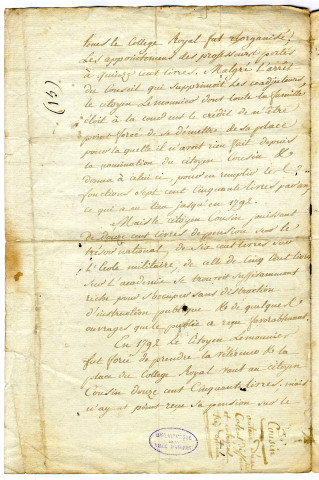 (15)
le College Royal fut réorganisé,
Les appointemens des professeurs portés
à quinze cent livres. Malgré l'arrêt
du conseil qui supprimoit les coadjuteurs,
le citoyen Lemonnier dont toute la famille
étoit à la cour eut le crédit de n'être
point forcé de se démettre de sa place
pour laquelle il n'avoit rien fait depuis
la nomination du citoyen Cousin. Il
donna à celui ci, pour en remplir les
fonctions sept cent cinquante livres par an
ce qui a eu lieu jusqu'en 1792.
Mais le citoyen Cousin, jouissant
de Douze cent livres de pension sur le
tresor national, de six cent livres sur
l'Ecole militaire, de celle de cinq cent livres
sur l'academie se trouvoit suffisamment
riche pour s'occuper sans distraction
d'instruction publique et de quelques
ouvrages que le public a reçu favorablement.
En 1792 le Citoyen Lemonnier
fut forcé de prendre la vétérance et la
place du College Royal vaut au citoyen
Cousin douze cent cinquante livres, mais
n'ayant point reçu sa pension sur le
Cousin